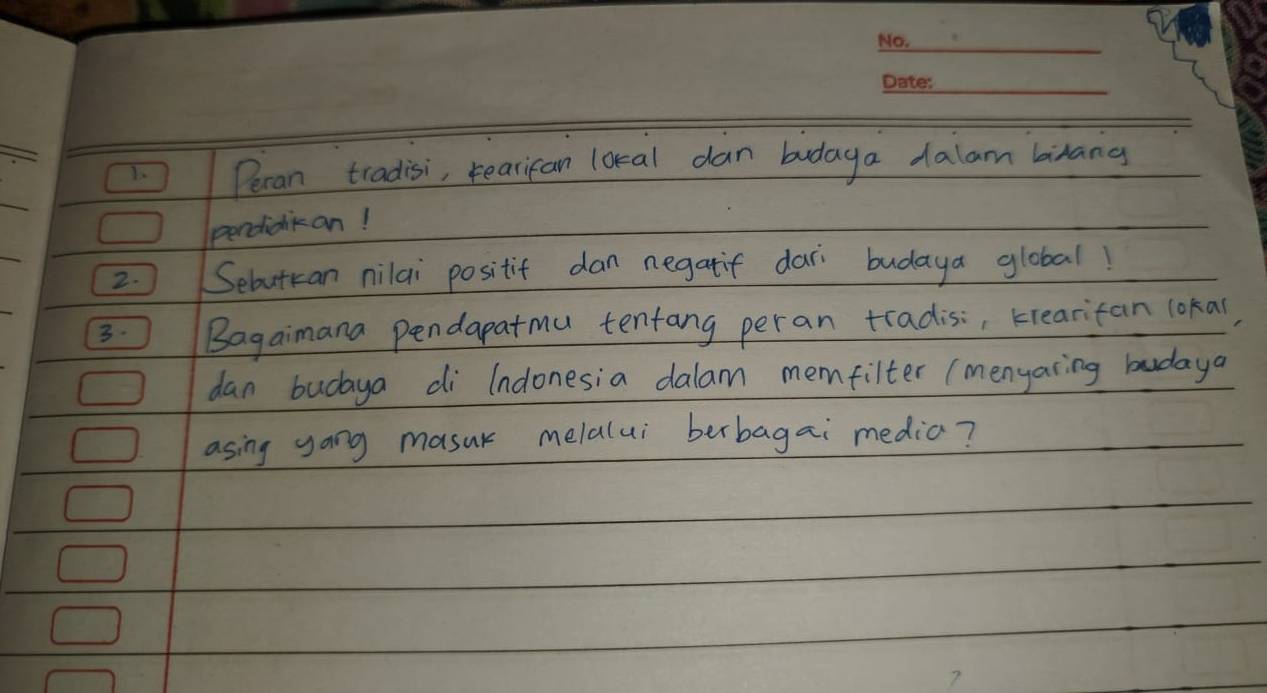 No.
Date:
1. Peran tradisi, kearifan lokal dan budaya dalam bidang
pendidikan !
2. Sebutkan nilai positif dan negatif dari budaya global !
3. Bagaimana pendapatmu tentang peran tradisi, krearifan lokal,
dan budaya di Indonesia dalam memfilter (menyaring budaya
asing yang masuk melalui berbagai media?